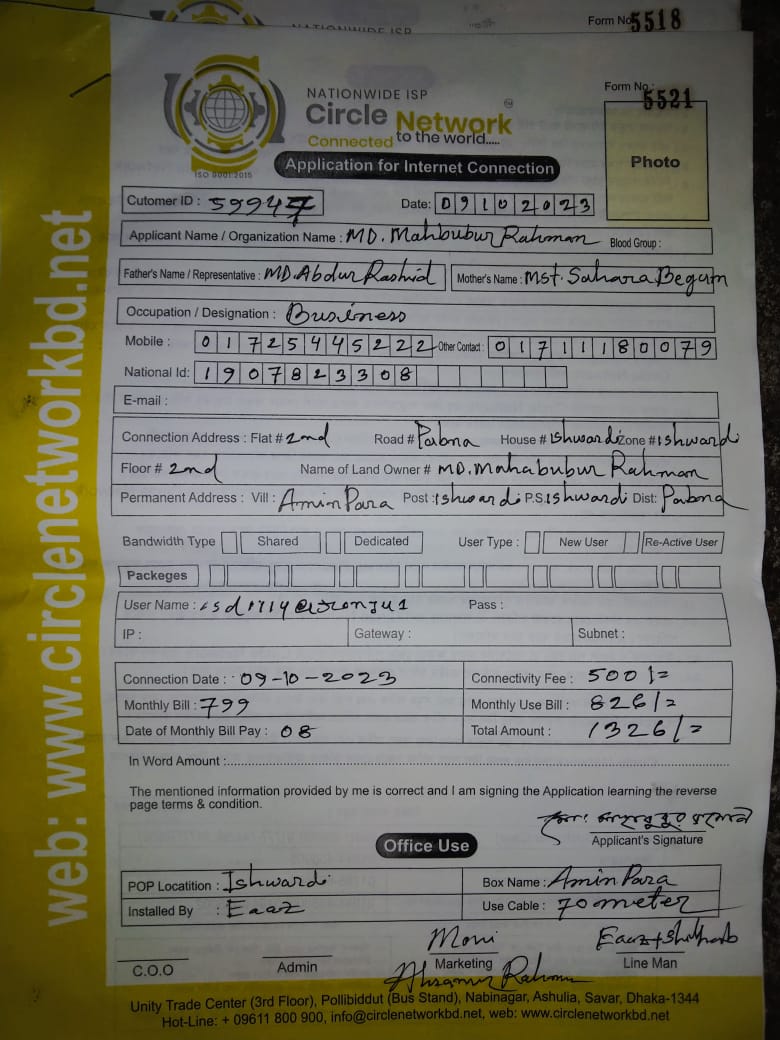 Form No 5518
NATIONWIDE ISP
Form No.: 5521
NATIONWIDE ISP
Circle Network
Connected to the world.....
Photo
ISO 9001:2015
Application for Internet Connection
Cutomer ID : 59947 Date: 09102023
Applicant Name / Organization Name : MD. Mahbubur Rahman Blood Group :
Father's Name / Representative : MD. Abdur Rashid Mother's Name : Mst. Sahara Begum
Occupation / Designation : Business
Mobile : 01725445222 Other Contact : 01711180079
National Id: 1907823308
E-mail :
Connection Address : Flat # 2nd Road # Pabna House # ishwardi Zone # ishwardi
Floor # 2nd Name of Land Owner # MD. Mahabubur Rahman
Permanent Address : Vill : Amin Para Post : ishwardi P.S. ishwardi Dist: Pabna
Bandwidth Type Shared Dedicated User Type : New User Re-Active User
Packeges
User Name : Pass :
IP : Gateway : Subnet :
Connection Date : 09-10-2023 Connectivity Fee : 500/=
Monthly Bill : 799 Monthly Use Bill : 826/=
Date of Monthly Bill Pay : 08 Total Amount : 1326/=
In Word Amount :
The mentioned information provided by me is correct and I am signing the Application learning the reverse
page terms & condition.
Applicant's Signature
Office Use
POP Locatition : Ishwardi Box Name : Amin Para
Installed By : Eaaz Use Cable : 70 meter
Moni
C.O.O Admin Marketing Line Man
Rahman
Unity Trade Center (3rd Floor), Pollibiddut (Bus Stand), Nabinagar, Ashulia, Savar, Dhaka-1344
Hot-Line: + 09611 800 900, info@circlenetworkbd.net, web: www.circlenetworkbd.net
web: www.circlenetworkbd.net